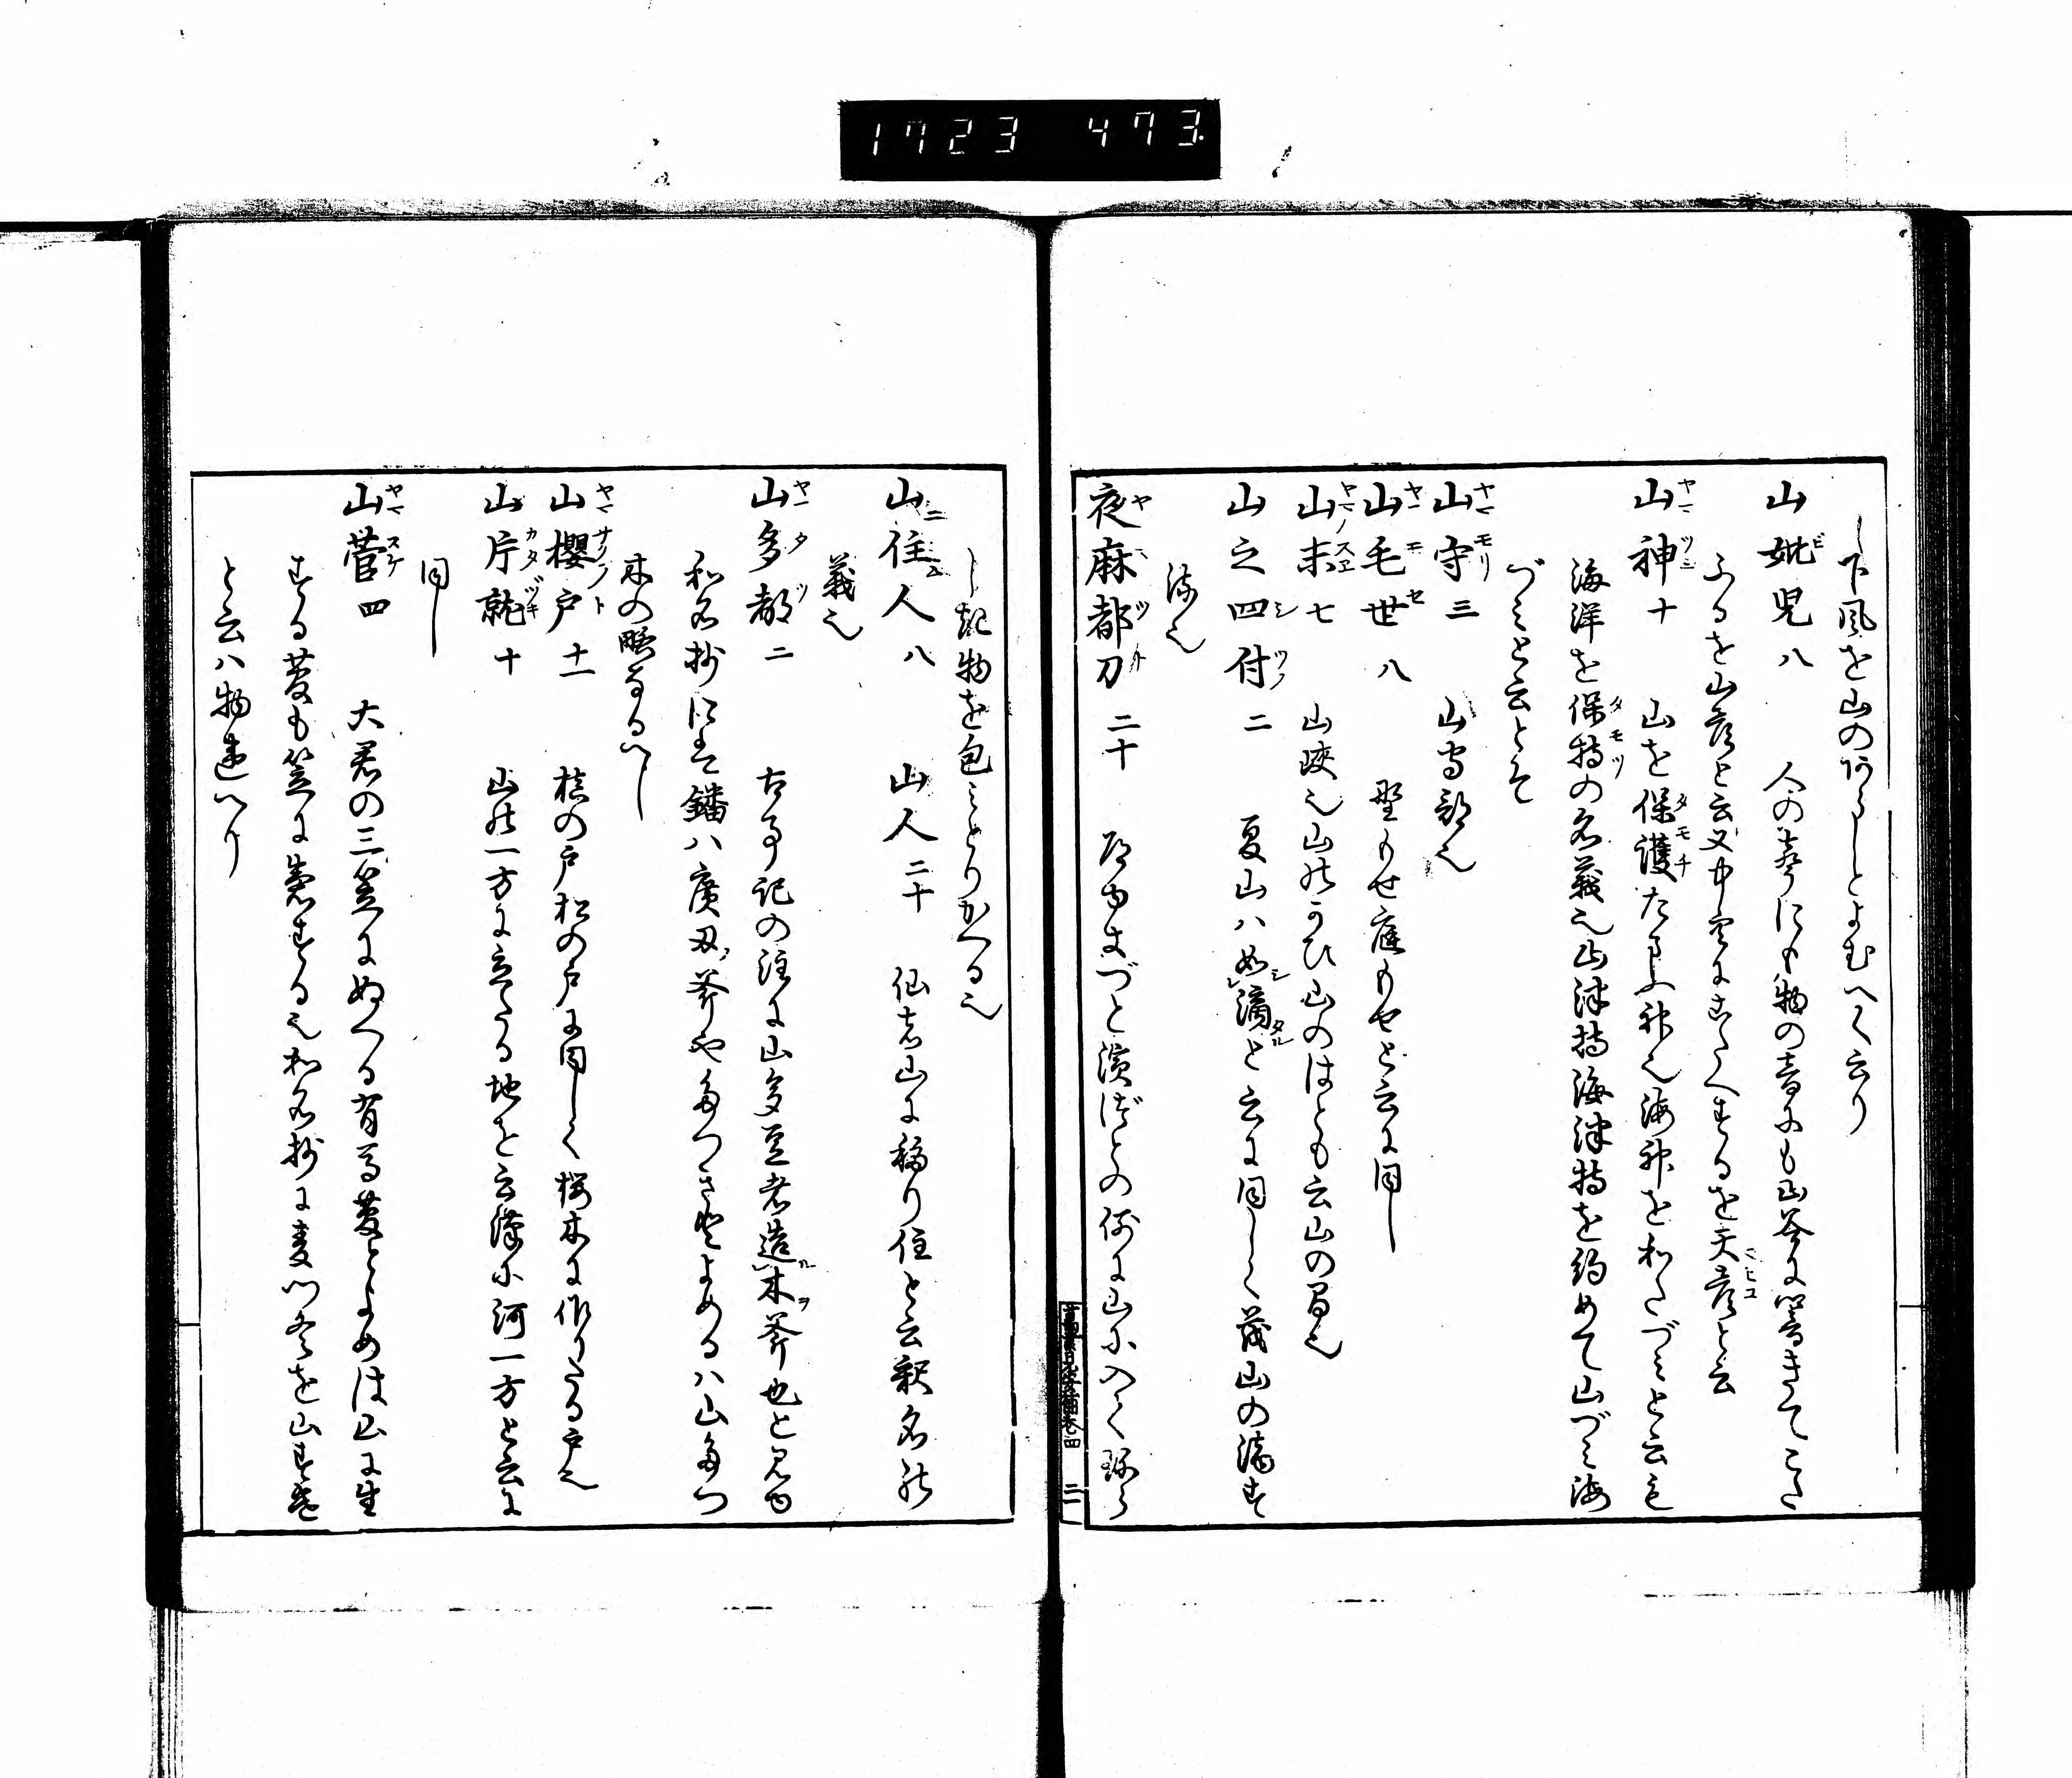 1723 473
下風を山のあらしとよむへく云り
山妣児八 人の声にも物の音にも山谷に響きてこた
ふるを山彦と云又中空にこたへするを天彦と云
山神十 山を保護たまふ神也海神をわたづみと云も
海洋を保持の名義也山津持海津持を約めて山づみ海
づみと云とそ
山守三 山守部也
山毛世八 野もせ庭もせと云に同し
山末七 山峡也山のかひ山のはとも云山の間也
山之四付二 夏山ハ如滴と云に同しく茂山の滴す
流也
夜麻都刀二十 濱づとの例に山に入て
し都物を包みとりかへる也
山住人八 山人二十 仙は山に移り住と云釈名の
義也
山多都二 古事記の注に山多豆者造木斧也と見ゆ
和名抄にて鐇ハ廣刃斧や多つき とよめるハ山多つ
木の略なるへし
山櫻戸十一 槙の戸松の戸に同しく桜木に作りたる戸也
山片就十 山の一方に立たる地を云漢に河一方と云に
同し
山菅四 大君の三笠にぬへる有馬菅とよめは山に生
する菅も笠に するも和名抄に麦門冬を山すけ
と云ハ物違へり